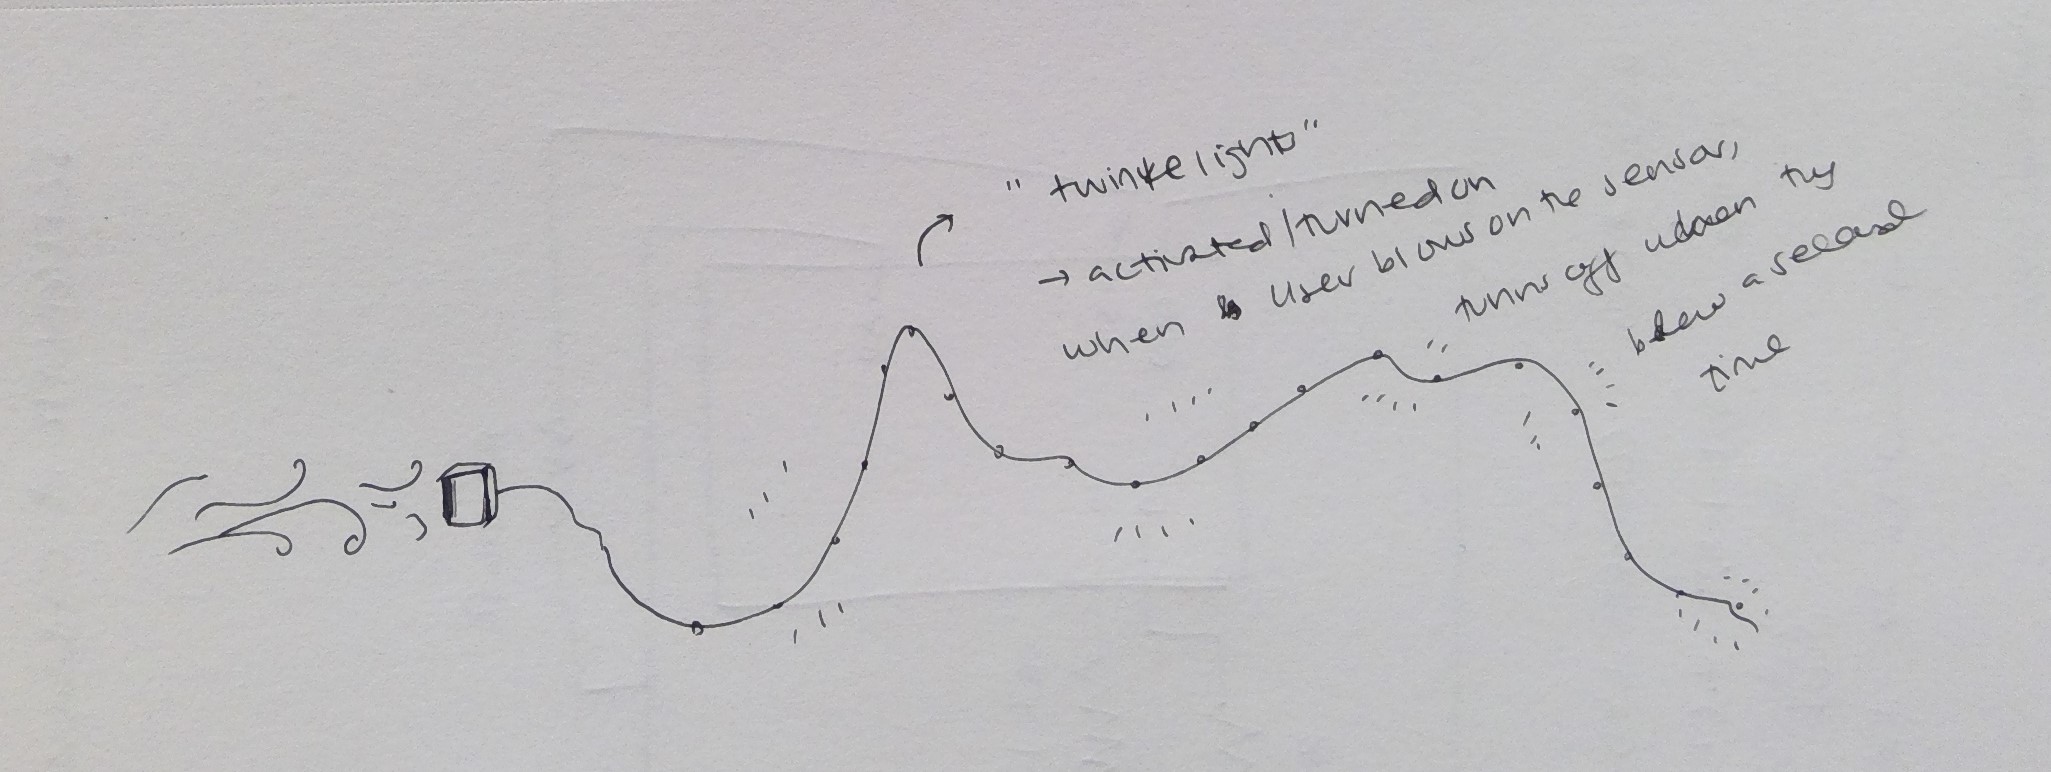 "twinkle lights"
→ activated/turned on
when user blows on the sensor,
turns off when they
blow a second
time